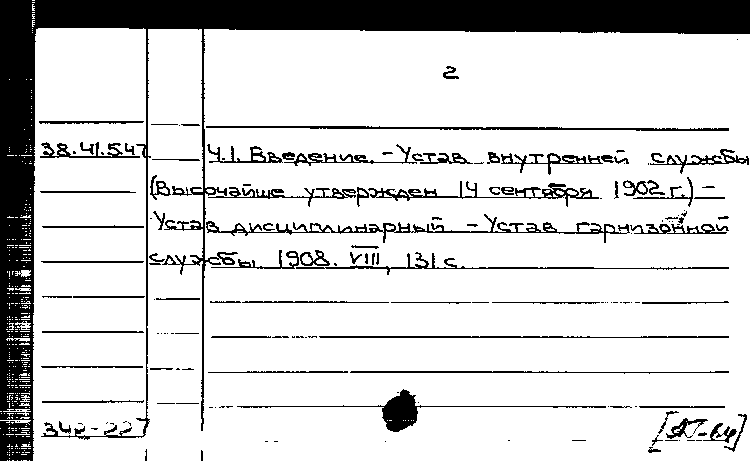 2
38.41.547 Ч.1. Введение. - Устав внутренней службы
(Высочайше утвержден 14 сентября 1902 г.) -
Устав дисциплинарный - Устав гарнизонной
службы 1908. VIII, 131 с.
342-227